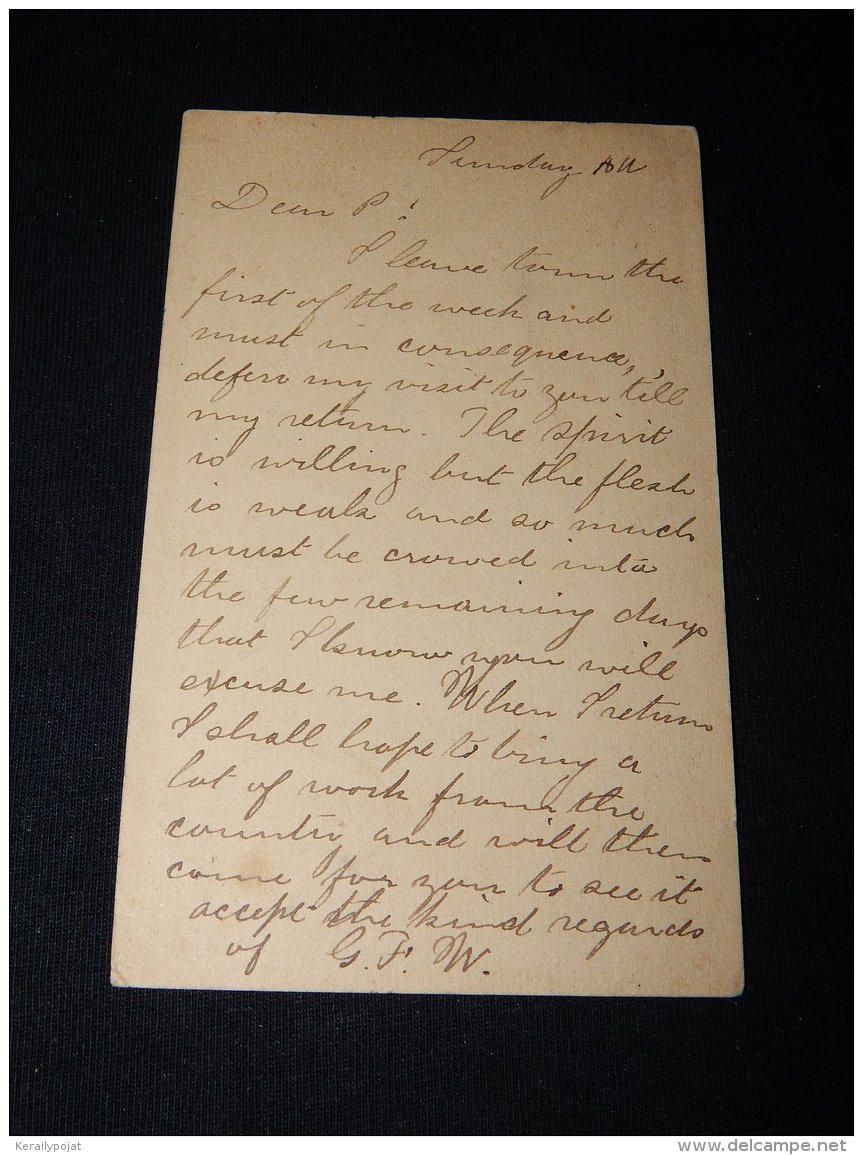 Sunday
Dear P!
I leave town the
first of the week and
must in consequence,
defer my visit to you till
my return. The spirit
is willing but the flesh
is weak and so much
must be crowed into
the few remaining days
that I know you will
excuse me. When I return
I shall hope to bring a
lot of work from the
country and will then
come for you to see it
accept the kind regards
of G. F. W.
Kerailypojat
www.delcampe.net